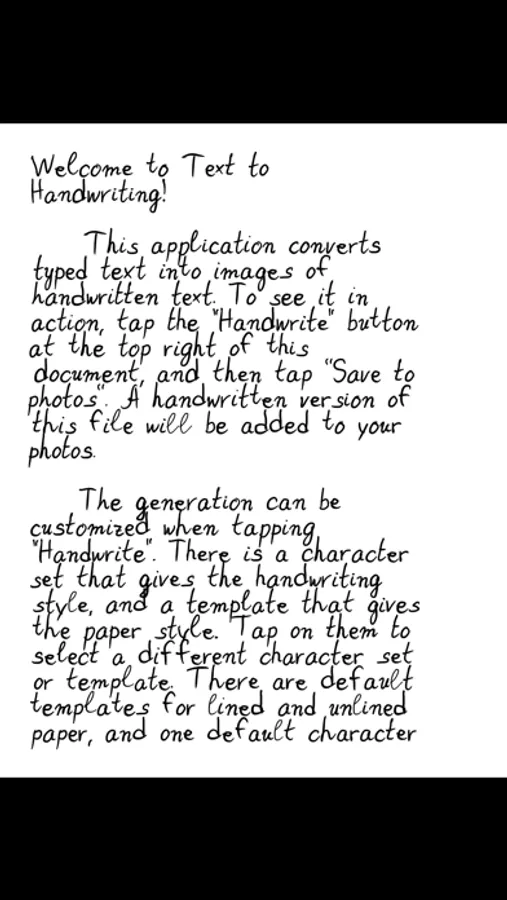 Welcome to Text to
Handwriting!
This application converts
typed text into images of
handwritten text. To see it in
action, tap the "Handwrite" button
at the top right of this
document, and then tap "Save to
photos". A handwritten version of
this file will be added to your
photos.
The generation can be
customized when tapping
"Handwrite". There is a character
set that gives the handwriting
style, and a template that gives
the paper style. Tap on them to
select a different character set
or template. There are default
templates for lined and unlined
paper, and one default character